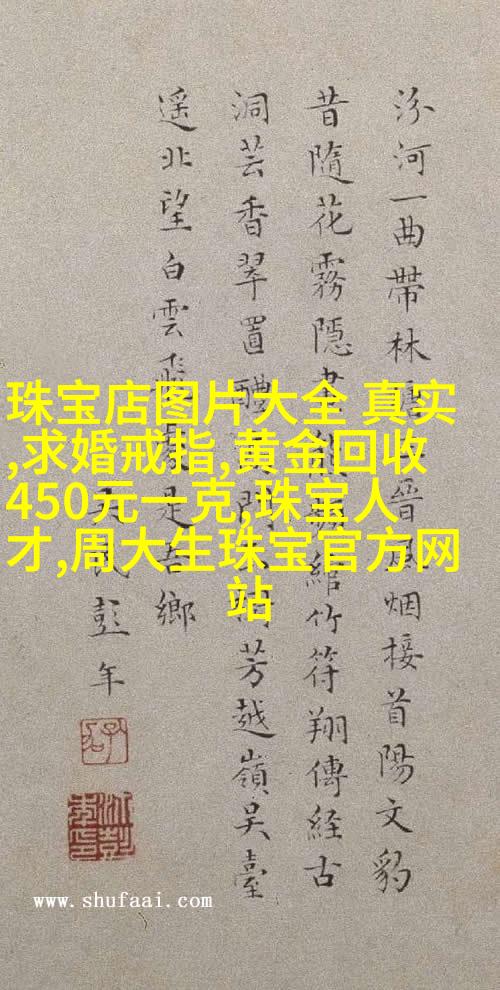 汾河一曲帶林晉烟接首陽文豹
昔隨花霧隱綰竹符翔傳経古
洞芸香翠置醴芳越嶺吴臺
遥北望白雲飛處是吾鄉
彭年
珠宝店图片大全 真实
,求婚戒指,黄金回收
450元一克,珠宝人
才,周大生珠宝官方网
站
www.shufaai.com